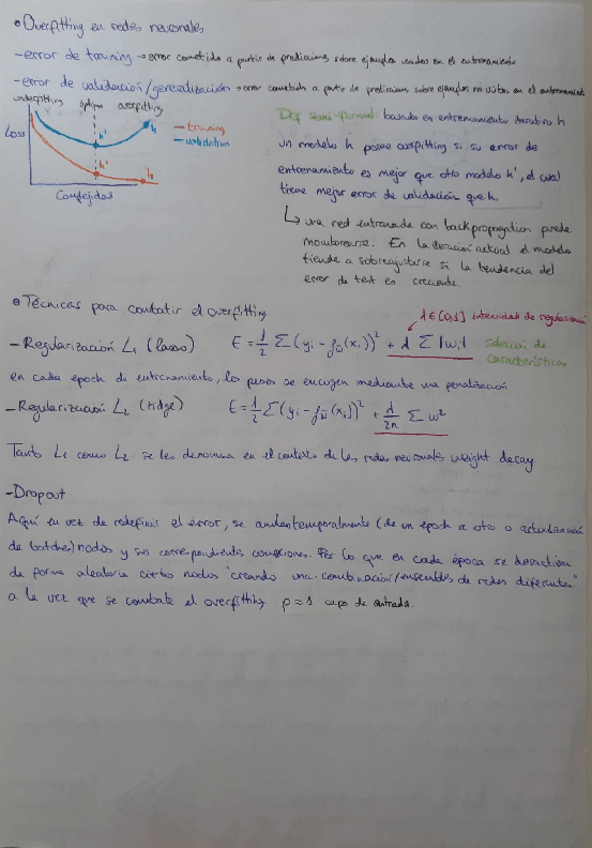 • Overfitting en redes neuronales
- error de training → error cometido a partir de predicciones sobre ejemplos usados en el entrenamiento
- error de validación/generalización → error cometido a partir de predicciones sobre ejemplos no vistos en el entrenamiento
underfitting óptimo overfitting
Loss
h'
h
h'
h
— training
— validation
Complejidad
Def semi-formal: basada en entrenamiento iterativo h
un modelo h posee overfitting si su error de
entrenamiento es mejor que otro modelo h', el cual
tiene mejor error de validación que h.
↳ una red entrenada con backpropagation puede
monitorearse. En la iteración actual el modelo
tiende a sobreajustarse si la tendencia del
error de test es creciente.
• Técnicas para combatir el overfitting
λ∈[0,1] intensidad de regularización
- Regularización L₁ (lasso) E = 1/2 Σ (yi - fw(xi))² + λ Σ |wi| selección de
características
en cada epoch de entrenamiento, los pesos se encogen mediante una penalización
- Regularización L₂ (ridge) E = 1/2 Σ (yi - fw(xi))² + λ/2n Σ w²
Tanto L₁ como L₂ se les denomina en el contexto de las redes neuronales weight decay
- Dropout
Aquí en vez de redefinir el error, se anulan temporalmente (de un epoch a otro o actualización
de batches) nodos y sus correspondientes conexiones. Por lo que en cada época se desactivan
de forma aleatoria ciertos nodos "creando una combinación/ensembles de redes diferentes"
a la vez que se combate el overfitting p≈1 capa de entrada.